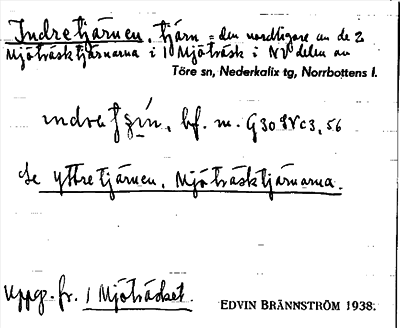 Indretjärnen, tjärn = den nordligare av de 2
Mjöträsktjärnarna i 1 Mjöträsk i NV delen av
Töre sn, Nederkalix tg, Norrbottens l.
bf. m.
Se yttretjärnen, Mjöträsktjärnarna.
Uppg. fr. 1 Mjöträsket.
EDVIN BRÄNNSTRÖM 1938.